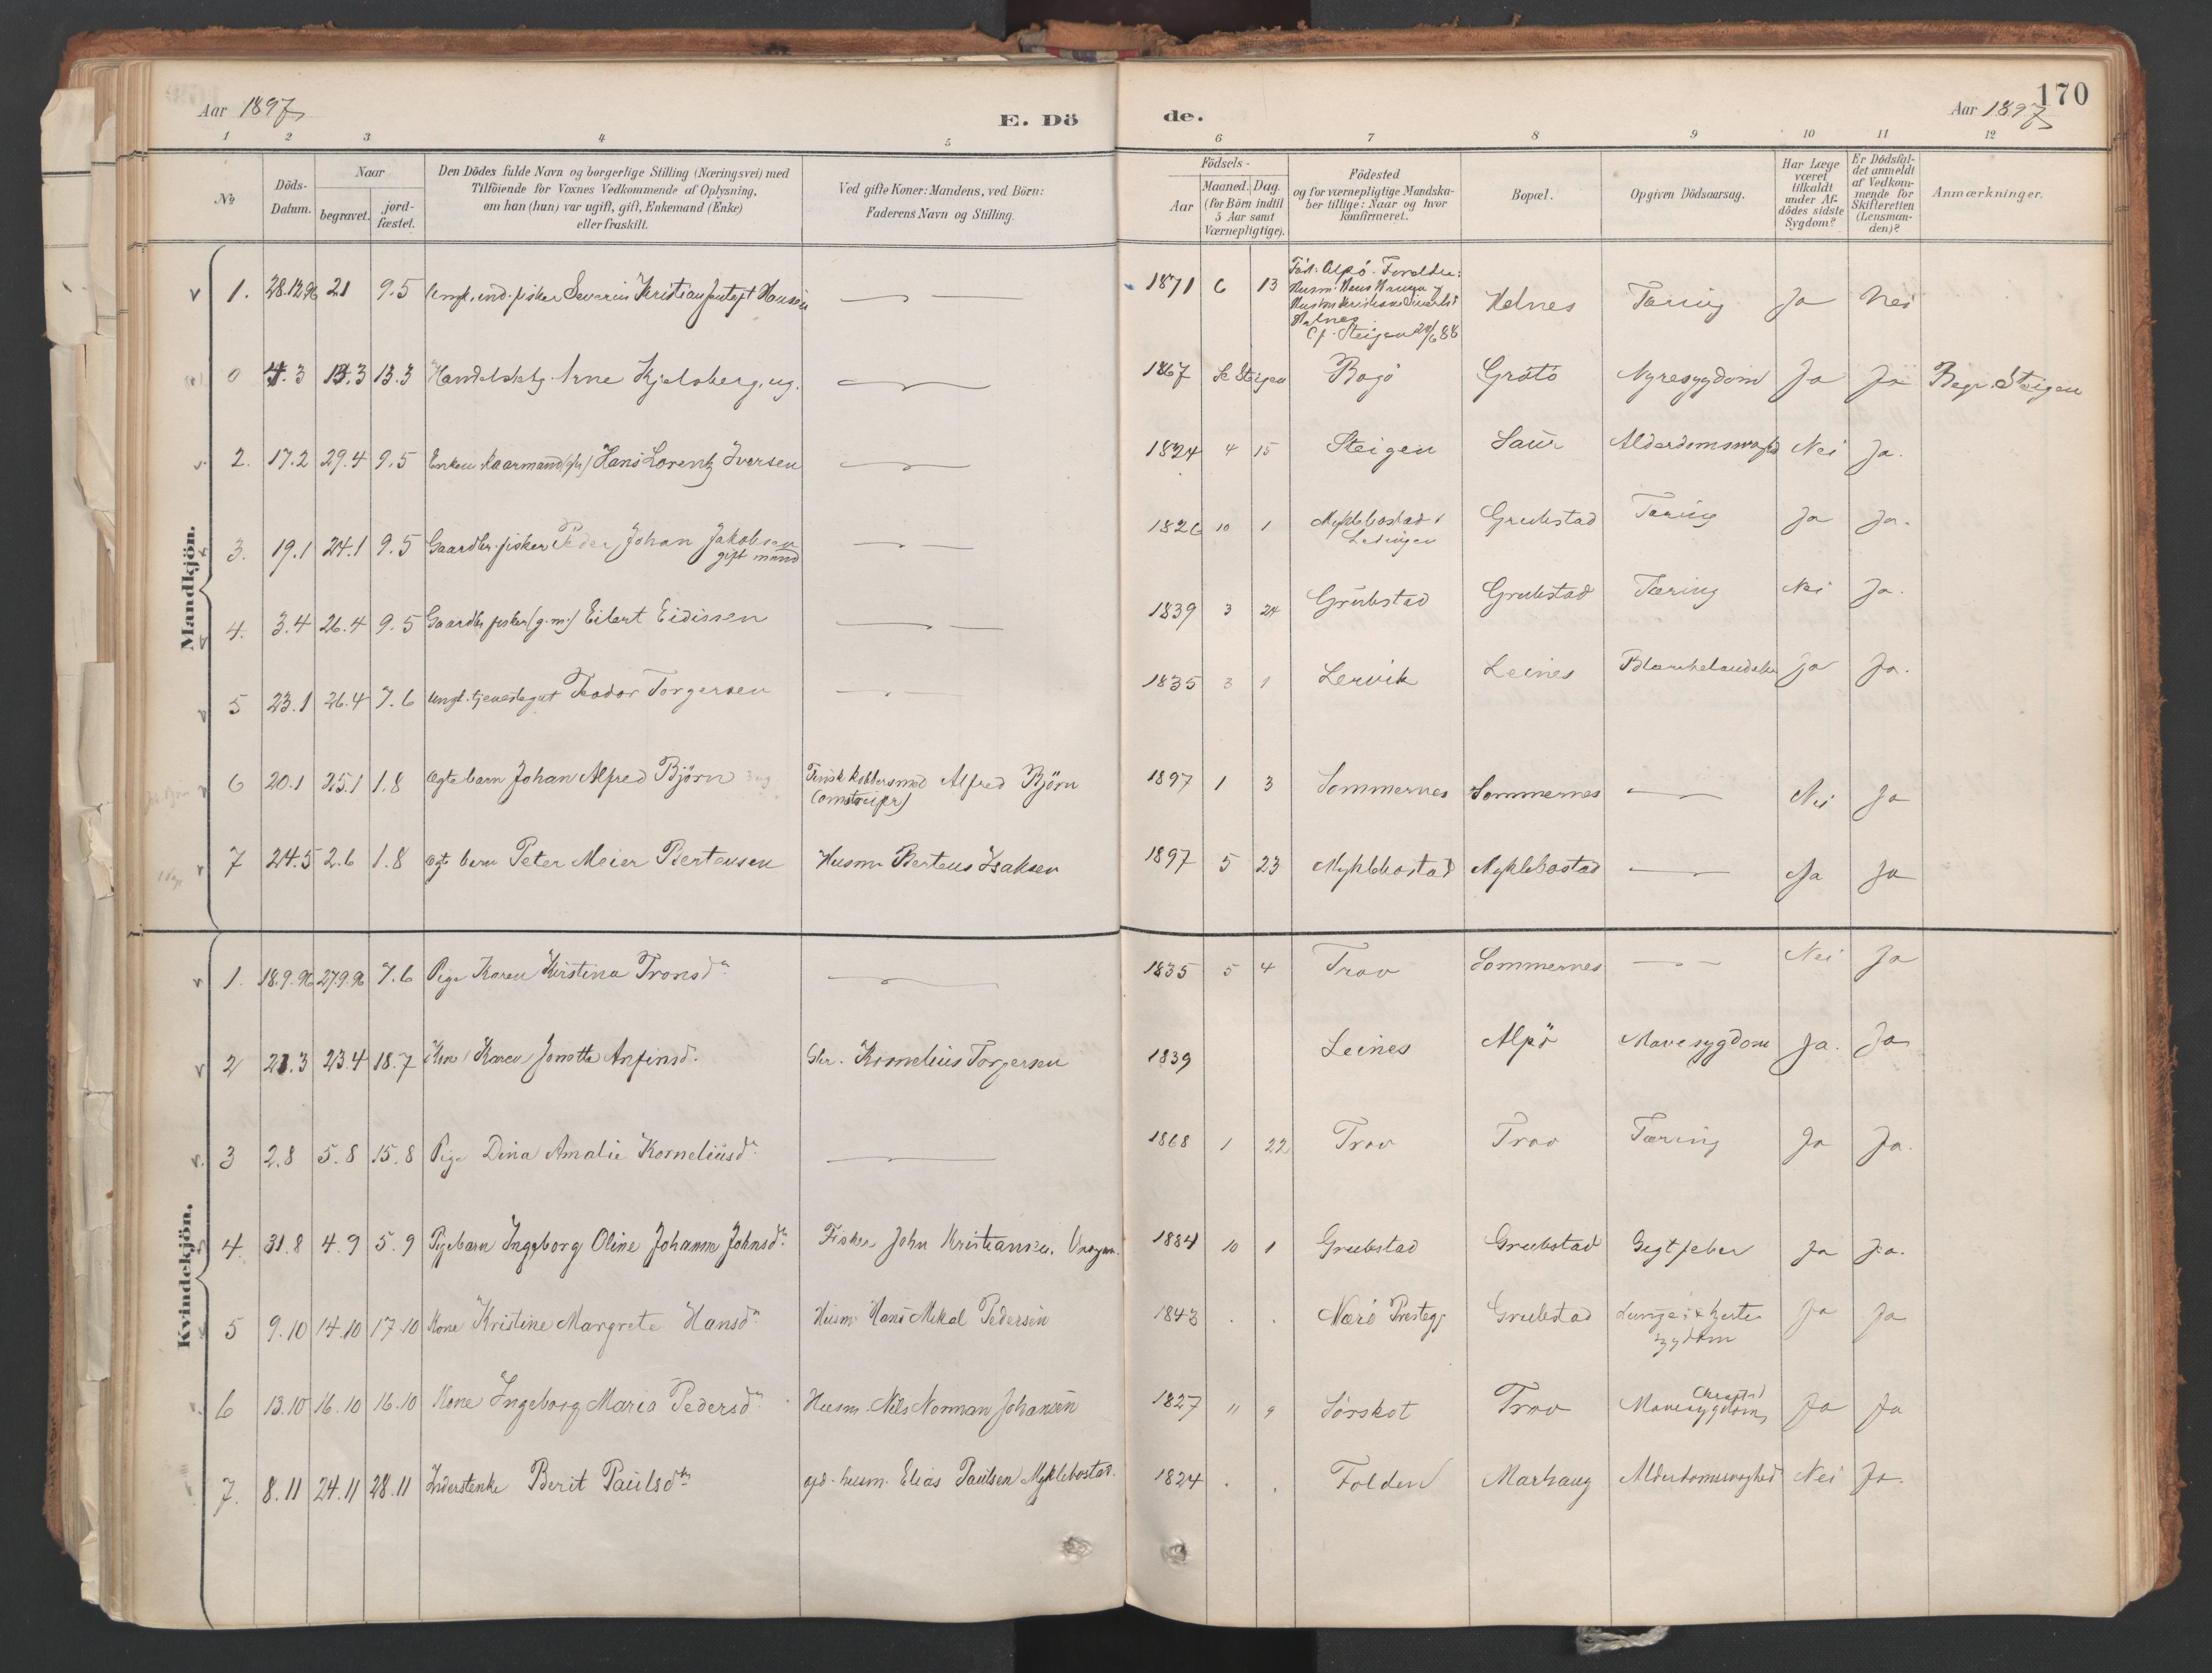 Aar 1897
E. Dö
de.
Aar 1897
170
1 2 3 4 5 6 7 8 9 10 11 12
No
Döds-
Datum.
Naar
begravet.
jord-
fæstet.
Den Dödes fulde Navn og borgerlige Stilling (Næringsvei) med
Tilföiende for Voxnes Vedkommende af Oplysning,
om han (hun) var ugift, gift, Enkemand (Enke)
eller fraskilt.
Ved gifte Koner: Mandens, ved Börn:
Faderens Navn og Stilling.
Födsels-
Aar
Maaned. Dag.
(for Börn indtil
5 Aar samt
Værnepligtige).
Födested
og for værnepligtige Mandska-
ber tillige: Naar og hvor
konfirmeret.
Bopæl.
Opgiven Dödsaarsag.
Har Læge
været
tilkaldt
under Af-
dödes sidste
Sygdom?
Er Dödsfal-
det anmeldt
af Vedkom-
mende for
Skifteretten
(Lensman-
den)?
Anmærkninger.
Mandkjön.
1. 28.12.96 21 9.5 fisker Severin Kristian Hansen 1871 6 13 Alpö Forældre: Helnes Tæring Ja Nei
Cf. Steigen 24/6 88
0 4.3 13.3 13.3 Arne Kjelsberg, ug. 1867 Se Steigen Bogö Grötö Nyresygdom Ja Ja Begr. Steigen
2. 17.2 29.4 9.5 Hans Lorentz Iversen 1824 4 15 Steigen Saur Nei Ja.
3. 19.1 24.1 9.5 Gaardbr. fisker Peder Johan Jakobsen
gift mand 1826 10 1 Myklebostad i
Lødingen Grubstad Tæring Ja Ja.
4. 3.4 26.4 9.5 Gaardbr fisker (g.m.) Eilert Eidissen 1839 3 24 Grubstad Grubstad Tæring Nei Ja.
5 23.1 26.4 7.6 ungk. tjenestegut Teodor Torgersen 1835 3 1 Lervik Leines Ja Ja.
6 20.1 25.1 1.8 ægte barn Johan Alfred Björn Finsk kobbersmed Alfred Björn
(omstreifer) 1897 1 3 Sommernes Sommernes Nei Ja
7 24.5 2.6 1.8 ægt barn Peter Meier Bertensen Husm Berteus Isaksen 1897 5 23 Myklebostad Myklebostad Ja Ja
Kvindekjön.
1. 18.9.96 27.9.96 7.6 Pige Karen Kirstina Tronsdr 1835 5 4 Trov Sommernes Nei Ja
2 21.3 23.4 18.7 Kone Karen Jonetta Anfinsd. Gbr. Kornelius Torgersen 1839 Leines Alpö Mavesygdom Ja. Ja
3 2.8 5.8 15.8 Pige Dina Amalie Korneliusdr 1868 1 22 Trov Trov Tæring Ja Ja.
4. 31.8 4.9 5.9 Pigebarn Ingeborg Oline Johanna Johnsdr Fisker John Kristiansen, 1884 10 1 Grubstad Grubstad Gigtfeber Ja Ja.
5 9.10 14.10 17.10 Kone Kristine Margrete Hansdr Husm. Hans Mikal Pedersen 1843 . . Nærö Prestegj Grubstad Lunge & hjerte
sygdom Ja Ja
6 13.10 16.10 16.10 Kone Ingeborg Maria Pedersdr Husm. Nils Norman Johansen 1827 11 9 Sörskot Trov Mavesygdom Ja Ja
7. 8.11 24.11 28.11 Inderstenke Berit Paulsdr husm. Elias Paulsen Myklebostad. 1824 . . Folden Marhaug Alderdomssvaghed Nei Ja.